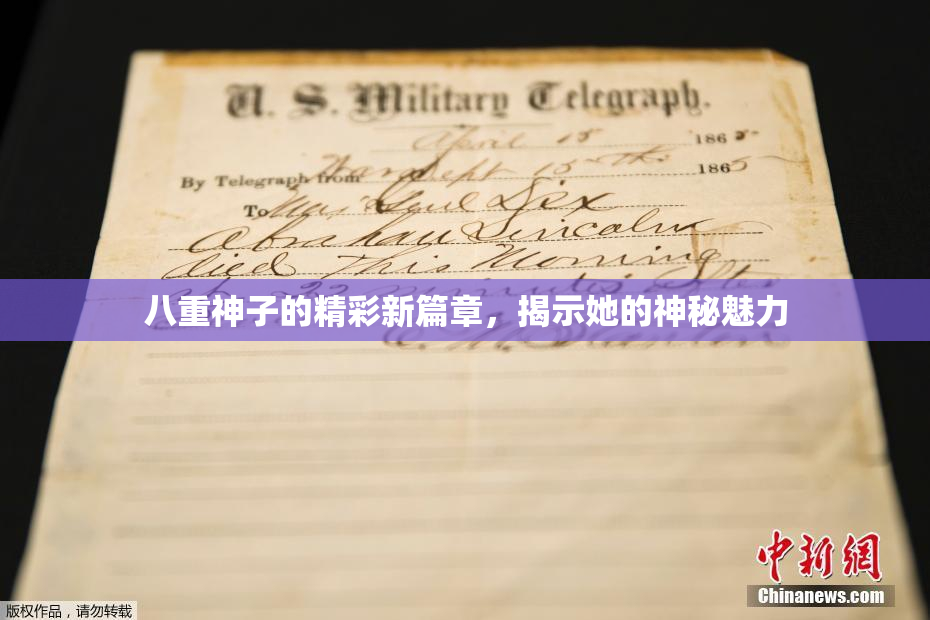 U. S. Military Telegraph.
April 15 1865
By Telegraph from War Dept 15th 1865
To Maj Genl Dix
Abraham Lincoln
died This Morning
22 minutes after
八重神子的精彩新篇章，揭示她的神秘魅力
E. M. Stanton
中新网
Chinanews.com
版权作品，请勿转载